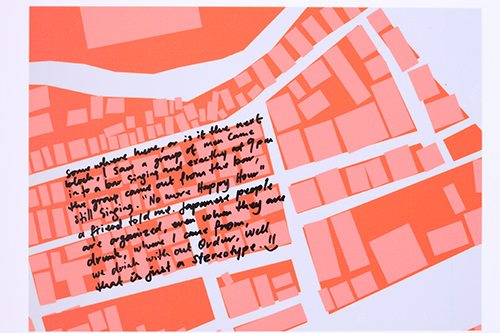 somewhere here, or is it the next
block, I saw a group of men came
into a bar singing and exactly at 9 pm
the group came out from the bar,
still singing. "No more Happy Hour"
a friend told me. Japanese people
are organized, even when they are
drunk, where I came from,
we drink without Order, well
that is just a stereotype..